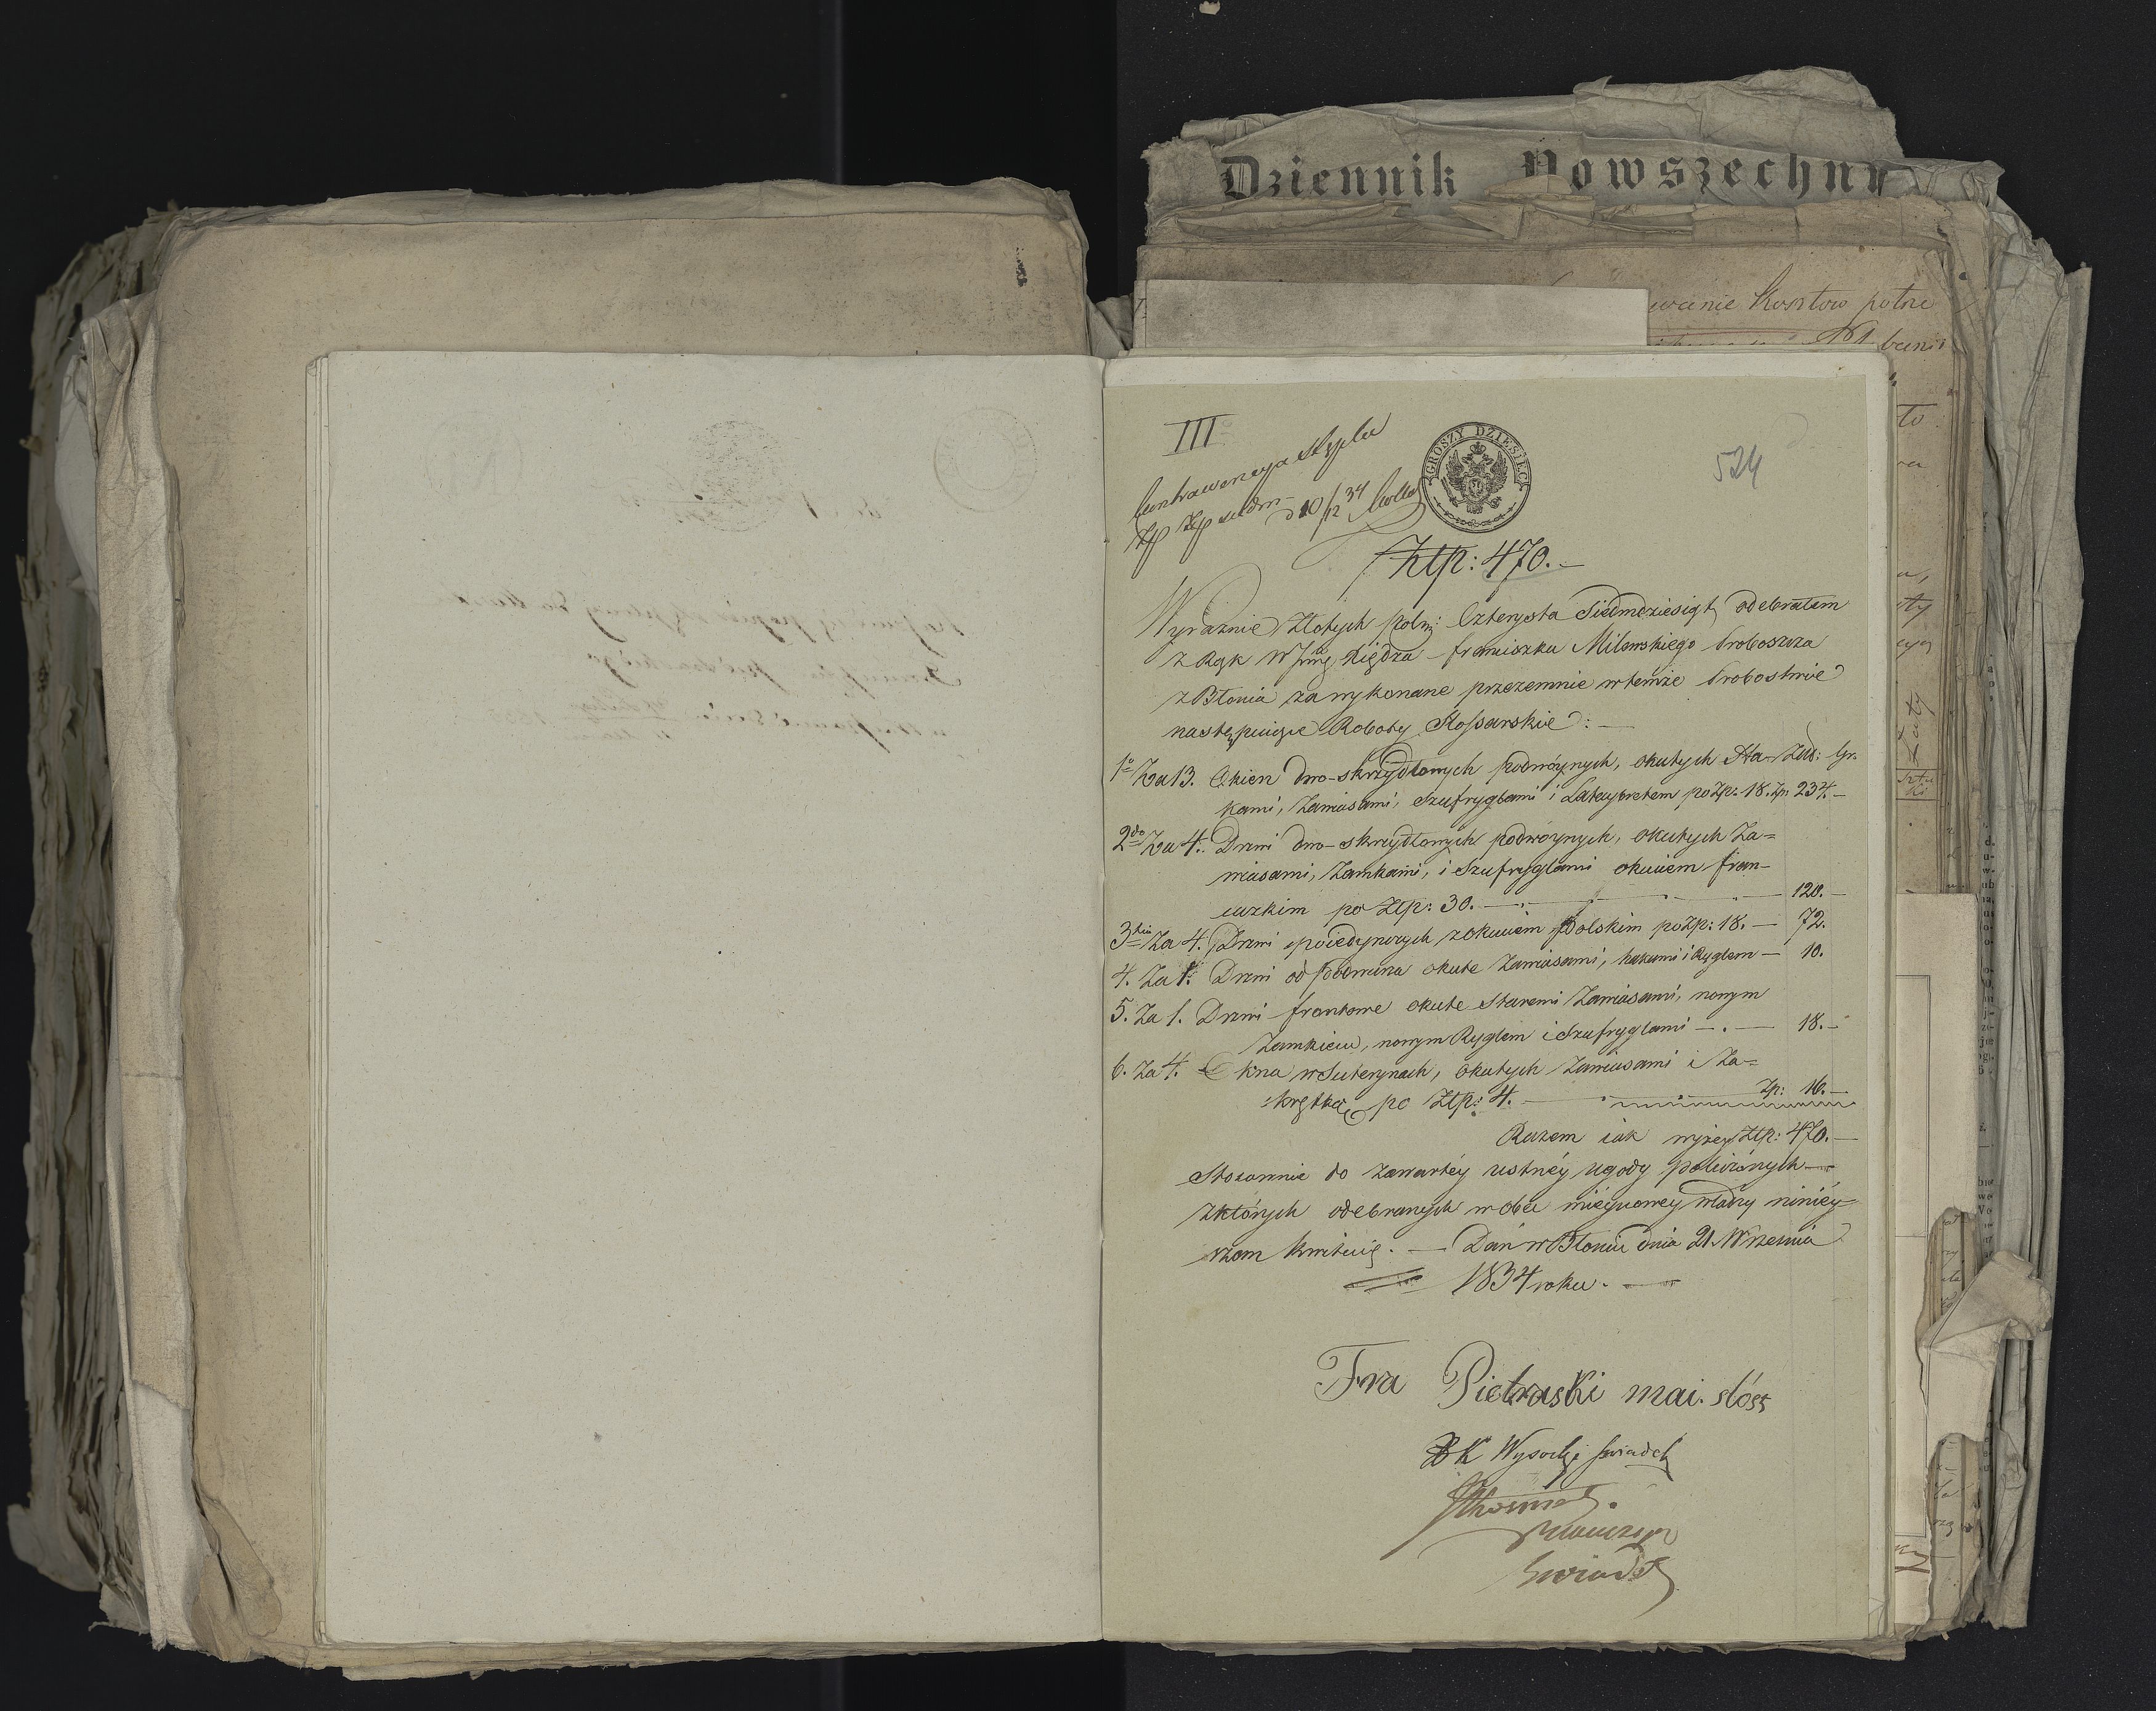 Dziennik Powszechny
wanie kosztów potrze
III
524
GROSZY DZIESIĘĆ
Kontrawencya stępla
d 10/12 34
Ztp: 470.—
Wyraźnie Złotych polm: Czterysta Siedmdziesiąt, odebrałem
z Rąk WJmć Xiędza – franciszka Milewskiego Proboszcza
z Błonia za wykonane przezemnie w temże Probostwie
następuiące Roboty Slossarskie: —
1o Za 13. Okien dwo-skrzydłowych podwóynych, okutych Ha- Złt: Gr.
kami, Zawiasami, Szufryglami i po Zp: 18. Zp. 234.—
2do Za 4. Drzwi dwo-skrzydłowych podwóynych, okutych Za=
wiasami, Zamkami, i Szufryglami okuciem fran-
cuzkim po Ztp: 30. — 120.—
3tio Za 4. Drzwi poiedynczych z okuciem Polskim po Zp: 18. — 72.
4. Za 1. Drzwi od okute Zawiasami, hakami i Ryglem — 10.
5. Za 1. Drzwi frontowe okute Staremi Zawiasami, nowym
Zamkiem, nowym Ryglem i Szufryglami —.— 18.—
6. Za 4. Okna w Suterynach, okutych Zawiasami i Za=
=krętką po Ztp: 4. — Zp: 16.—
Razem iak wyżey Ztp: 470.—
Stosownie do zawartéy ustnéy ugody policzonych —
z których odebranych w obec mieyscowey władzy niniéy-
szem kwituię. — Dan w Błoniu dnia 21. Września
1834 roku. —
Fra Pietraski mai. slóss
K Wysocki świadek
Świadek